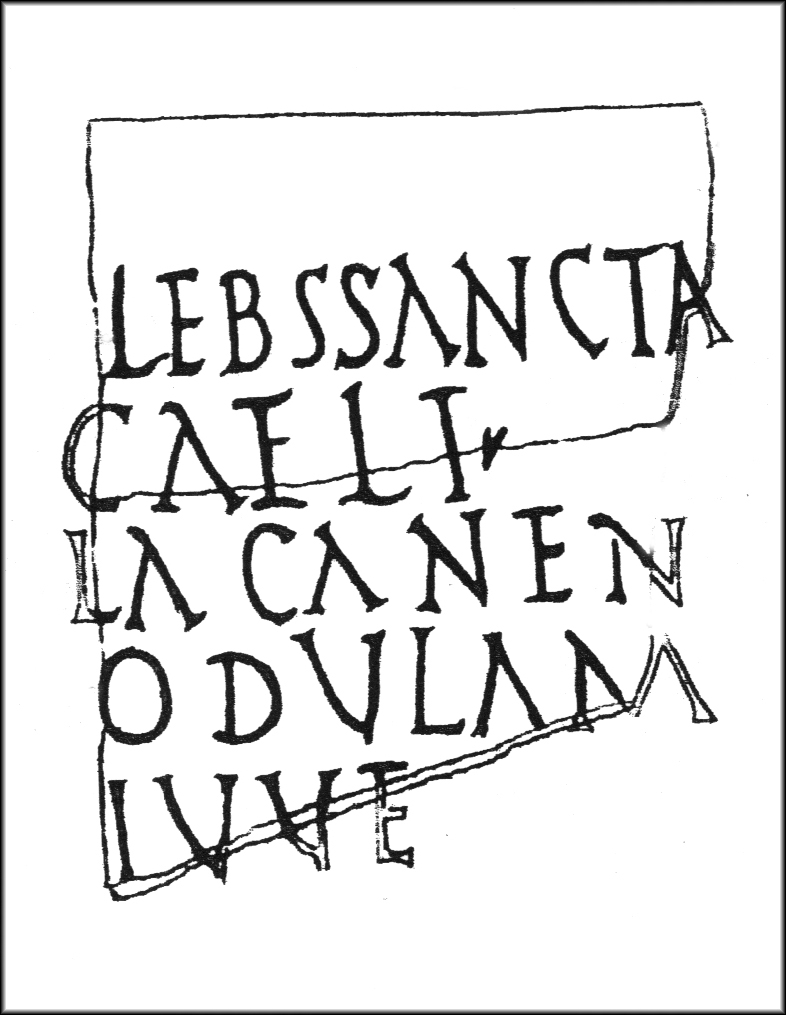 LEBSSANCTA
CAELT
LACANEN
ODVLAM
IVVE